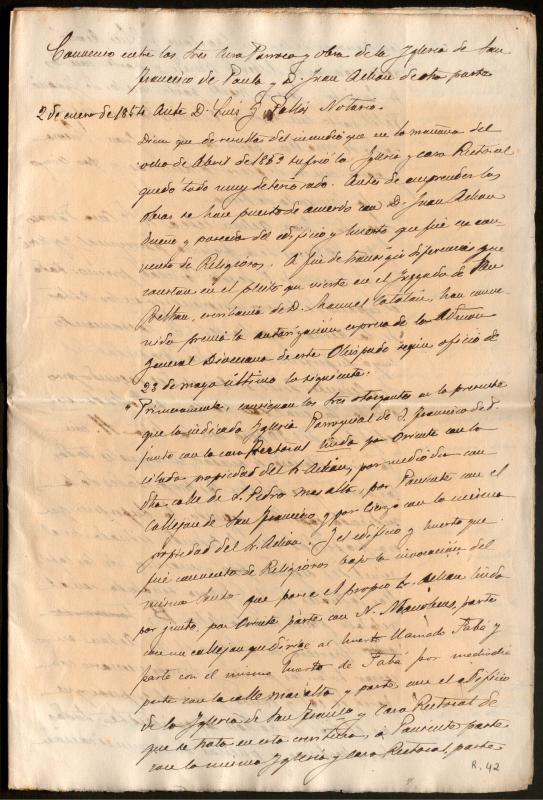 Convenio entre los tres Cura Parroco y obra de la Yglesia de San
francisco de Paula y D. Juan Achon de otra parte
2 de enero de 1854 Ante D. Luis G Pallos Notario.
Dicen que de resultas del incendio que en la mañana del
ocho de Abril de 1853 sufrio la Yglesia y casa Rectoral
quedo todo muy deteriorado. Antes de emprender las
obras se han puesto de acuerdo con D. Juan Achon
dueño y poseedor del edificio y huerto que fué ex con-
vento de Religiosos. A fin de transigir diferencias que
constan en el pleito que vierte en el Juzgado de San
Beltran, escribania de D. Manuel Catalan, han conve-
nido previa la autorizacion expresa de la Admon
General Diocesana de este Obispado según oficio de
23 de mayo último lo siguiente.
Primeramente, consignan los tres otorgantes en la presente
que la indicada Yglesia Parroquial de S. francisco de P.
junto con la casa Rectoral linda por Oriente con la
citada propiedad del Sr. Achon, por mediodia con
dha calle de S. Pedro mas alta, por Poniente con el
callejon de San francisco y por Cierzo con la misma
propiedad del Sr. Achon. Y el edificio y huerto que
fué convento de Religiosos bajo la invocacion del
mismo Santo que posee el propio Sr. Achon linda
por junto, por Oriente parte con N. parte
con un callejon que dirige al huerto llamado Fabá y
parte con el mismo huerto de Fabá por mediodia
parte con la calle mas alta y parte con el edificio
de la Yglesia de San francisco y casa Rectoral de
que se trata en esta escritura, a Poniente parte
con la misma Yglesia y casa Rectoral, parte
R. 42